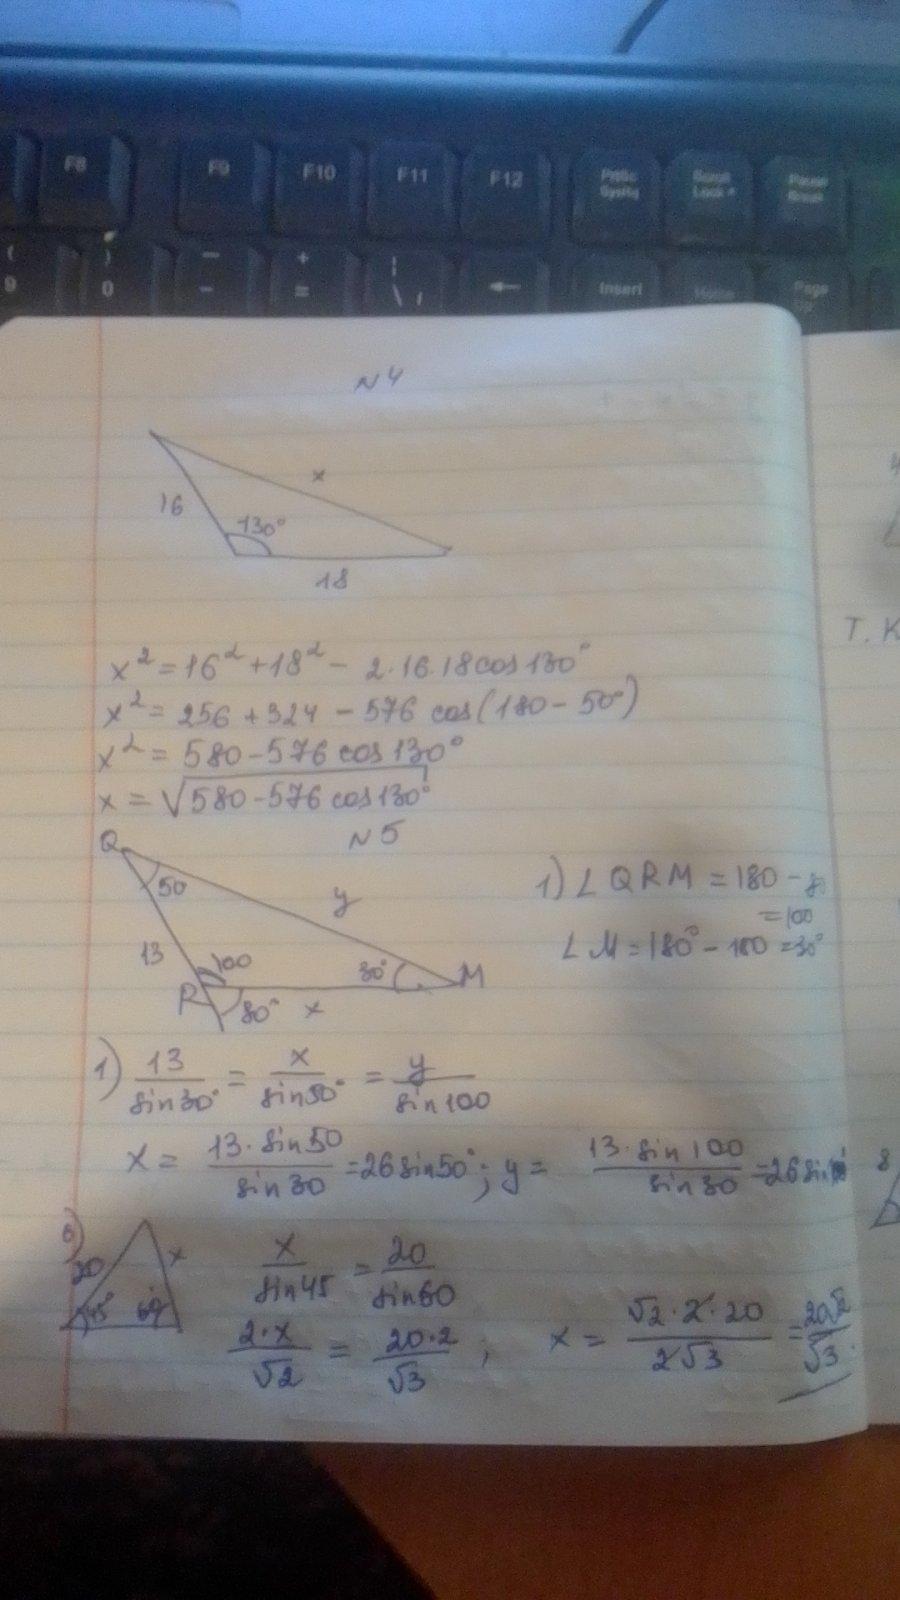 F8 F9 F10 F11 F12 PrtSc SysRq Scroll Lock Pause Break
( 9 ) 0 — - + = | \ ← Insert Home Page Up
N 4
16 x
130°
18
x² = 16² + 18² - 2·16·18 cos 130°
x² = 256 + 324 - 576 cos(180 - 50°)
x² = 580 - 576 cos 130°
x = √580 - 576 cos 130°
N 5
Q
50
y
13 100 30° M
R 80° x
1) ∠QRM = 180 - 80
= 100
∠M = 180° - 180 = 30°
1) 13/sin 30° = x/sin 50° = y/sin 100
x = 13·sin 50/sin 30 = 26 sin 50°; y = 13·sin 100/sin 30 = 26 sin
6)
20 x
45° 60°
x/sin 45 = 20/sin 60
2·x/√2 = 20·2/√3 ; x = √2·2·20/2√3 = 20√2/√3.
т. к
8